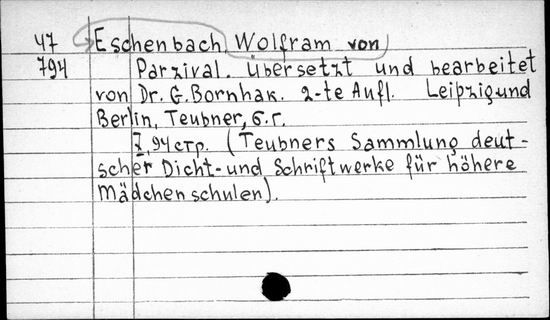 47 Eschenbach, Wolfram von
794 Parzival. Übersetzt und bearbeitet
von Dr. G. Bornhak. 2-te Aufl. Leipzig und
Berlin, Teubner, б.г.
I, 94 стр. (Teubners Sammlung deut-
scher Dicht- und Schriftwerke für höhere
Mädchenschulen).